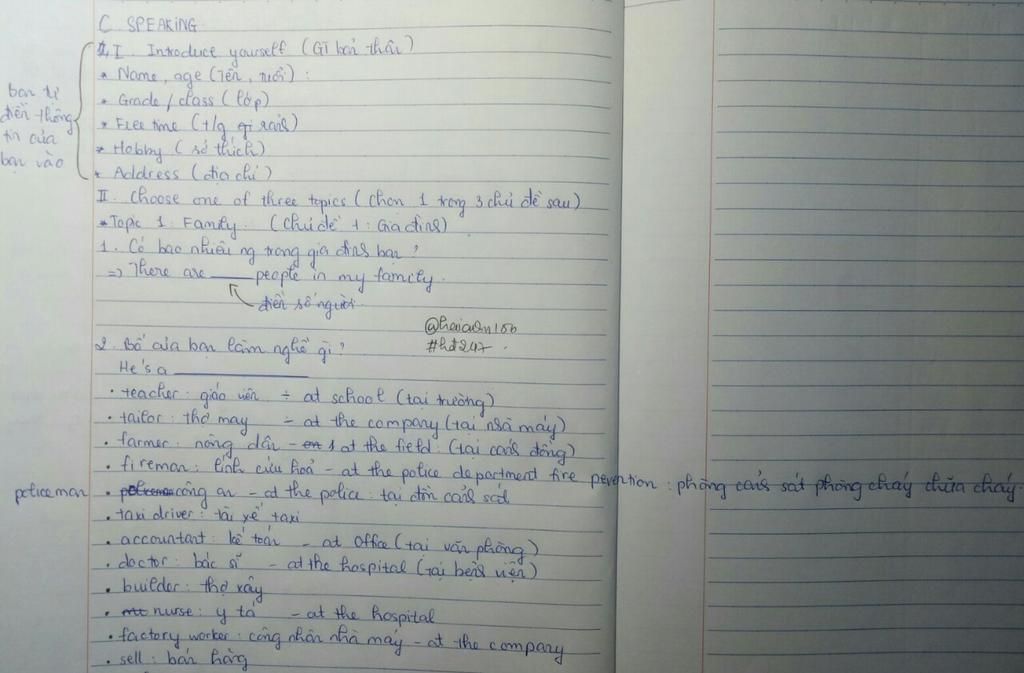 C. SPEAKING
I. Introduce yourself (GT bản thân)
* Name, age (Tên, tuổi) :
* Grade / class (lớp)
* Free time (t/g rảnh)
* Hobby (sở thích)
* Address (địa chỉ)
bạn tự
điền thông
tin của
bạn vào
II. Choose one of three topics (chọn 1 trong 3 chủ đề sau)
* Topic 1: Family. (Chủ đề 1: Gia đình)
1. Có bao nhiêu ng trong gia đình bạn ?
=> There are ____ people in my family.
điền số người
#hđ247
2. Bố của bạn làm nghề gì ?
He's a ____
• teacher : giáo viên ÷ at school (tại trường)
• tailor : thợ may ÷ at the company (tại nhà máy)
• farmer : nông dân - at the field (tại cánh đồng)
• fireman : lính cứu hoả - at the police department fire pevention : phòng cảnh sát phòng cháy chữa cháy.
policeman • công an - at the police : tại đồn cảnh sát
• taxi driver : tài xế taxi
• accountant : kế toán - at office (tại văn phòng)
• doctor : bác sĩ - at the hospital (tại bệnh viện)
• builder : thợ xây
• nurse : y tá - at the hospital
• factory worker : công nhân nhà máy - at the company
• sell : bán hàng